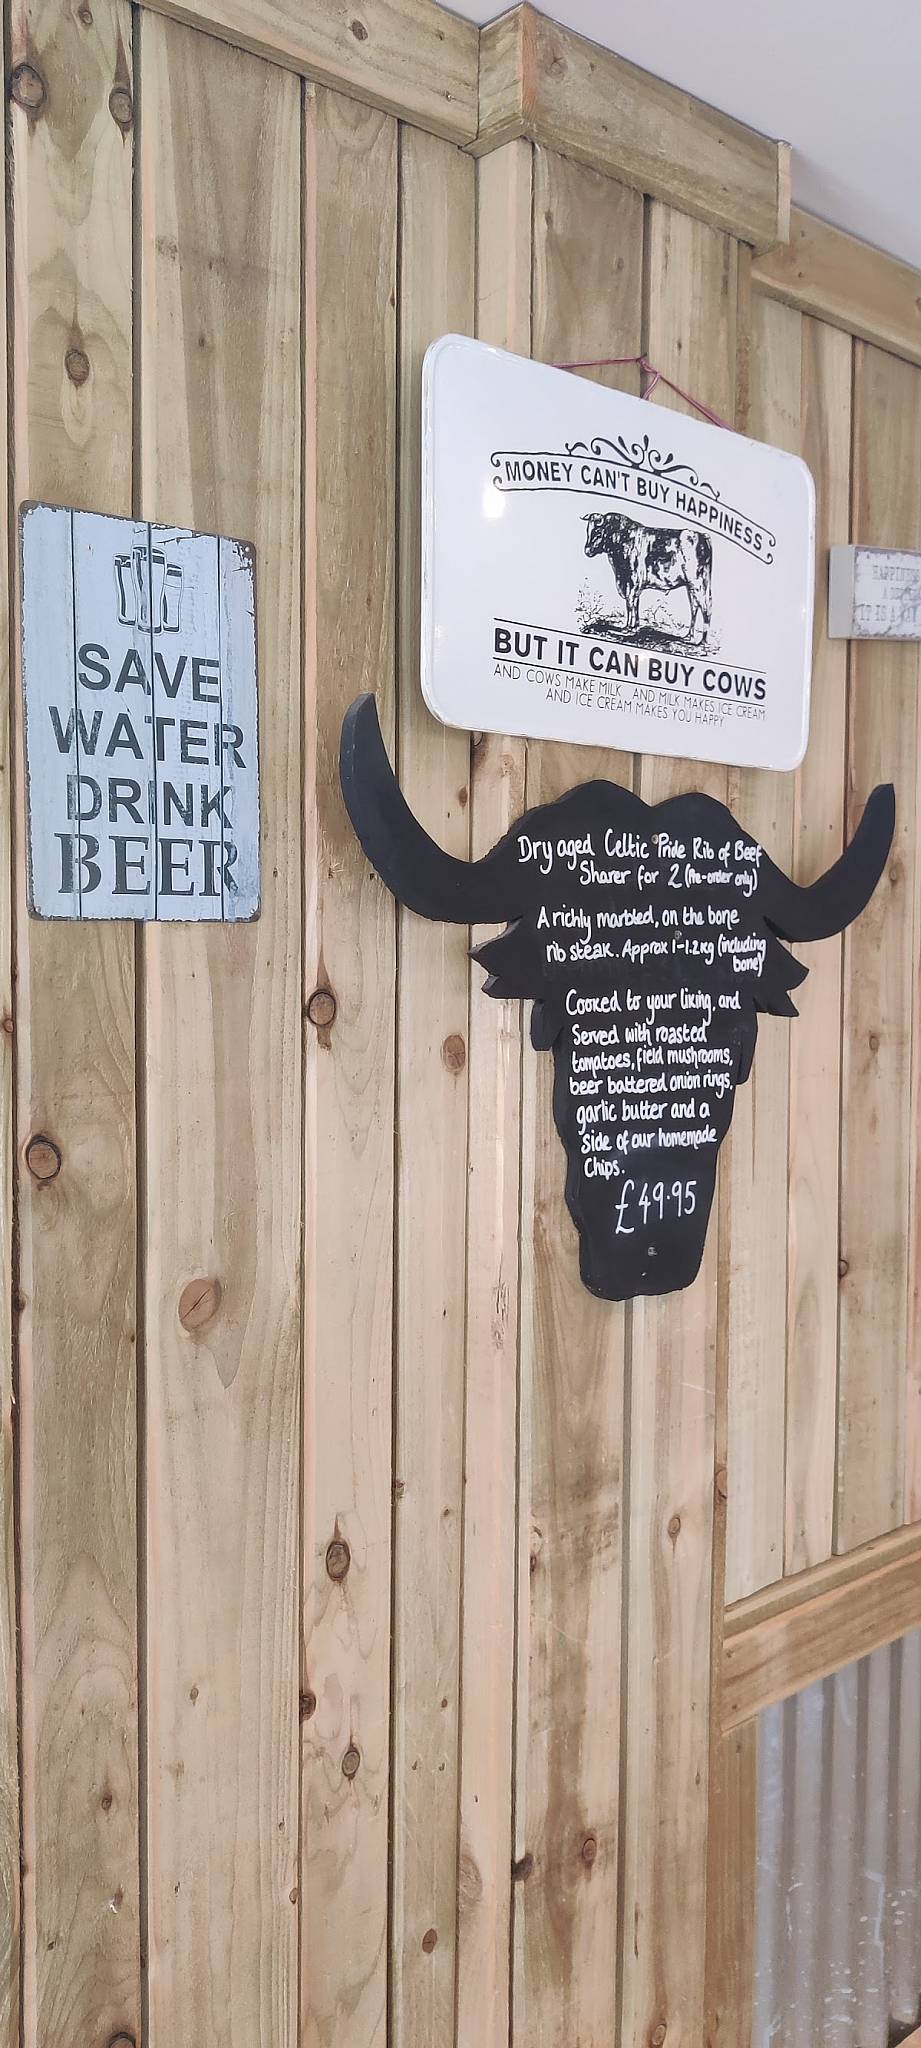 SAVE
WATER
DRINK
BEER
MONEY CAN'T BUY HAPPINESS
BUT IT CAN BUY COWS
AND COWS MAKE MILK AND MILK MAKES ICE CREAM
AND ICE CREAM MAKES YOU HAPPY
Dry aged Celtic Pride Rib of Beef
Sharer for 2 (Pre-order only)
A richly marbled, on the bone
rib steak. Approx 1-1.2kg (including
bone)
Cooked to your liking, and
Served with roasted
tomatoes, field mushrooms,
beer battered onion rings,
garlic butter and a
side of our homemade
Chips.
£49.95
IT IS A